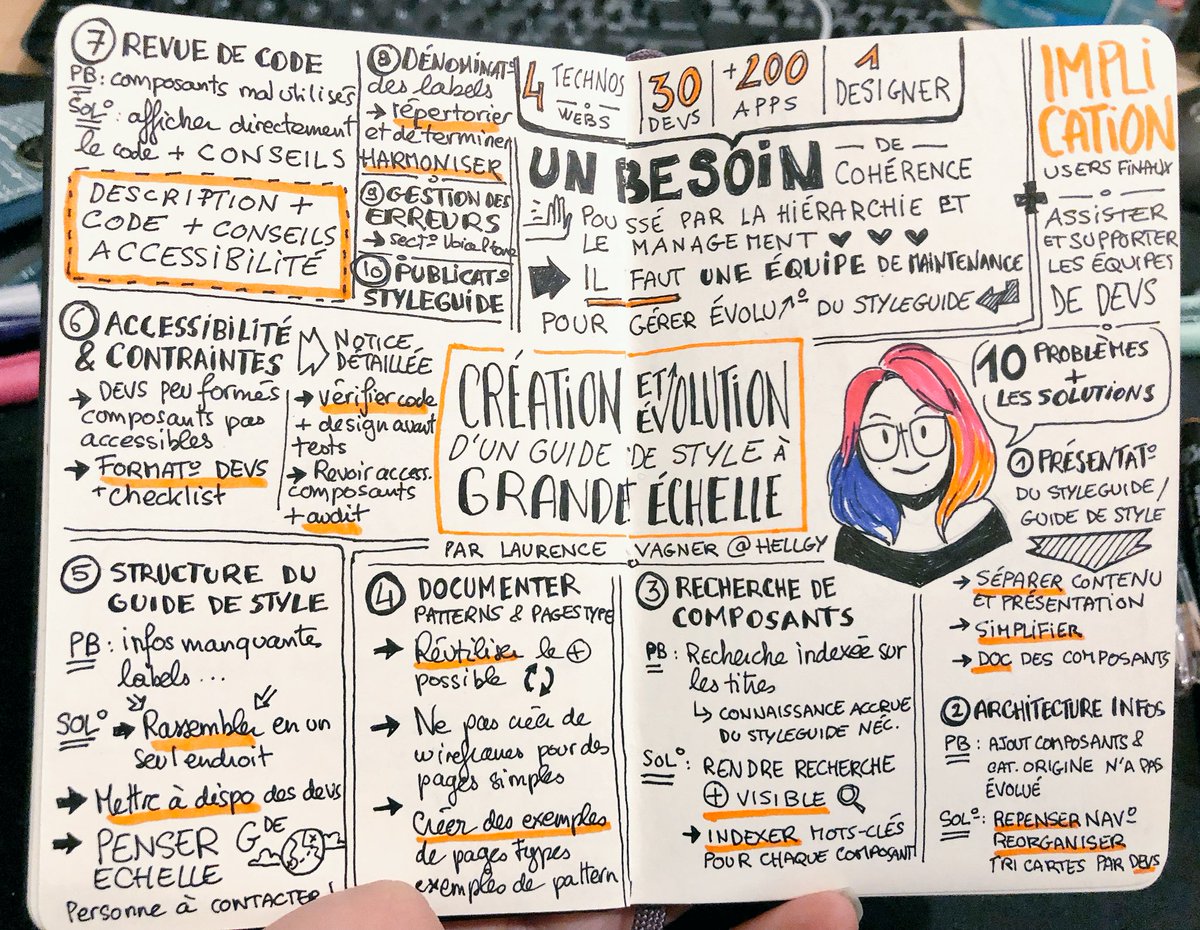 CRÉATION ET ÉVOLUTION
D'UN GUIDE DE STYLE À
GRANDE ÉCHELLE
PAR LAURENCE VAGNER @HELLGY
4 TECHNOS WEBS
30 DEVS
+200 APPS
1 DESIGNER
UN BESOIN DE COHÉRENCE
POUSSÉ PAR LA HIÉRARCHIE ET
LE MANAGEMENT
IL FAUT UNE ÉQUIPE DE MAINTENANCE
POUR GÉRER ÉVOLU° DU STYLEGUIDE
IMPLICATION
USERS FINAUX
+
ASSISTER
ET SUPPORTER
LES ÉQUIPES
DE DEVS
10 PROBLÈMES
+
LES SOLUTIONS
1 PRÉSENTAT°
DU STYLEGUIDE/
GUIDE DE STYLE
SÉPARER CONTENU
ET PRÉSENTATION
SIMPLIFIER
DOC DES COMPOSANTS
2 ARCHITECTURE INFOS
PB : AJOUT COMPOSANTS &
CAT. ORIGINE N'A PAS
ÉVOLUÉ
SOL° : REPENSER NAV°
REORGANISER
TRI CARTES PAR DEVS
3 RECHERCHE DE
COMPOSANTS
PB : Recherche indexée sur
les titres
CONNAISSANCE ACCRUE
DU STYLEGUIDE NÉC.
SOL° : RENDRE RECHERCHE
+ VISIBLE
INDEXER MOTS-CLÉS
POUR CHAQUE COMPOSANT
4 DOCUMENTER
PATTERNS & PAGES TYPE
Réutiliser le +
possible
Ne pas créer de
wireframes pour des
pages simples
Créer des exemples
de pages types
exemples de pattern
5 STRUCTURE DU
GUIDE DE STYLE
PB : infos manquante
labels...
SOL° Rassembler en un
seul endroit
Mettre à dispo des devs
PENSER GDE
ECHELLE
Personne à CONTACTER!
6 ACCESSIBILITÉ
& CONTRAINTES
NOTICE
DÉTAILLÉE
DEVS peu formés
composants pas
accessibles
FORMAT° DEVS
+ checklist
vérifier code
+ design avant
tests
Revoir access.
composants
+ audit
7 REVUE DE CODE
PB : composants mal utilisés
SOL° : afficher directement
le code + CONSEILS
DESCRIPTION +
CODE + CONSEILS
ACCESSIBILITÉ
8 DÉNOMINAT°
des labels
répertorier
et déterminer
HARMONISER
9 GESTION DES
ERREURS
sect° Voice/tone
10 PUBLICAT°
STYLEGUIDE